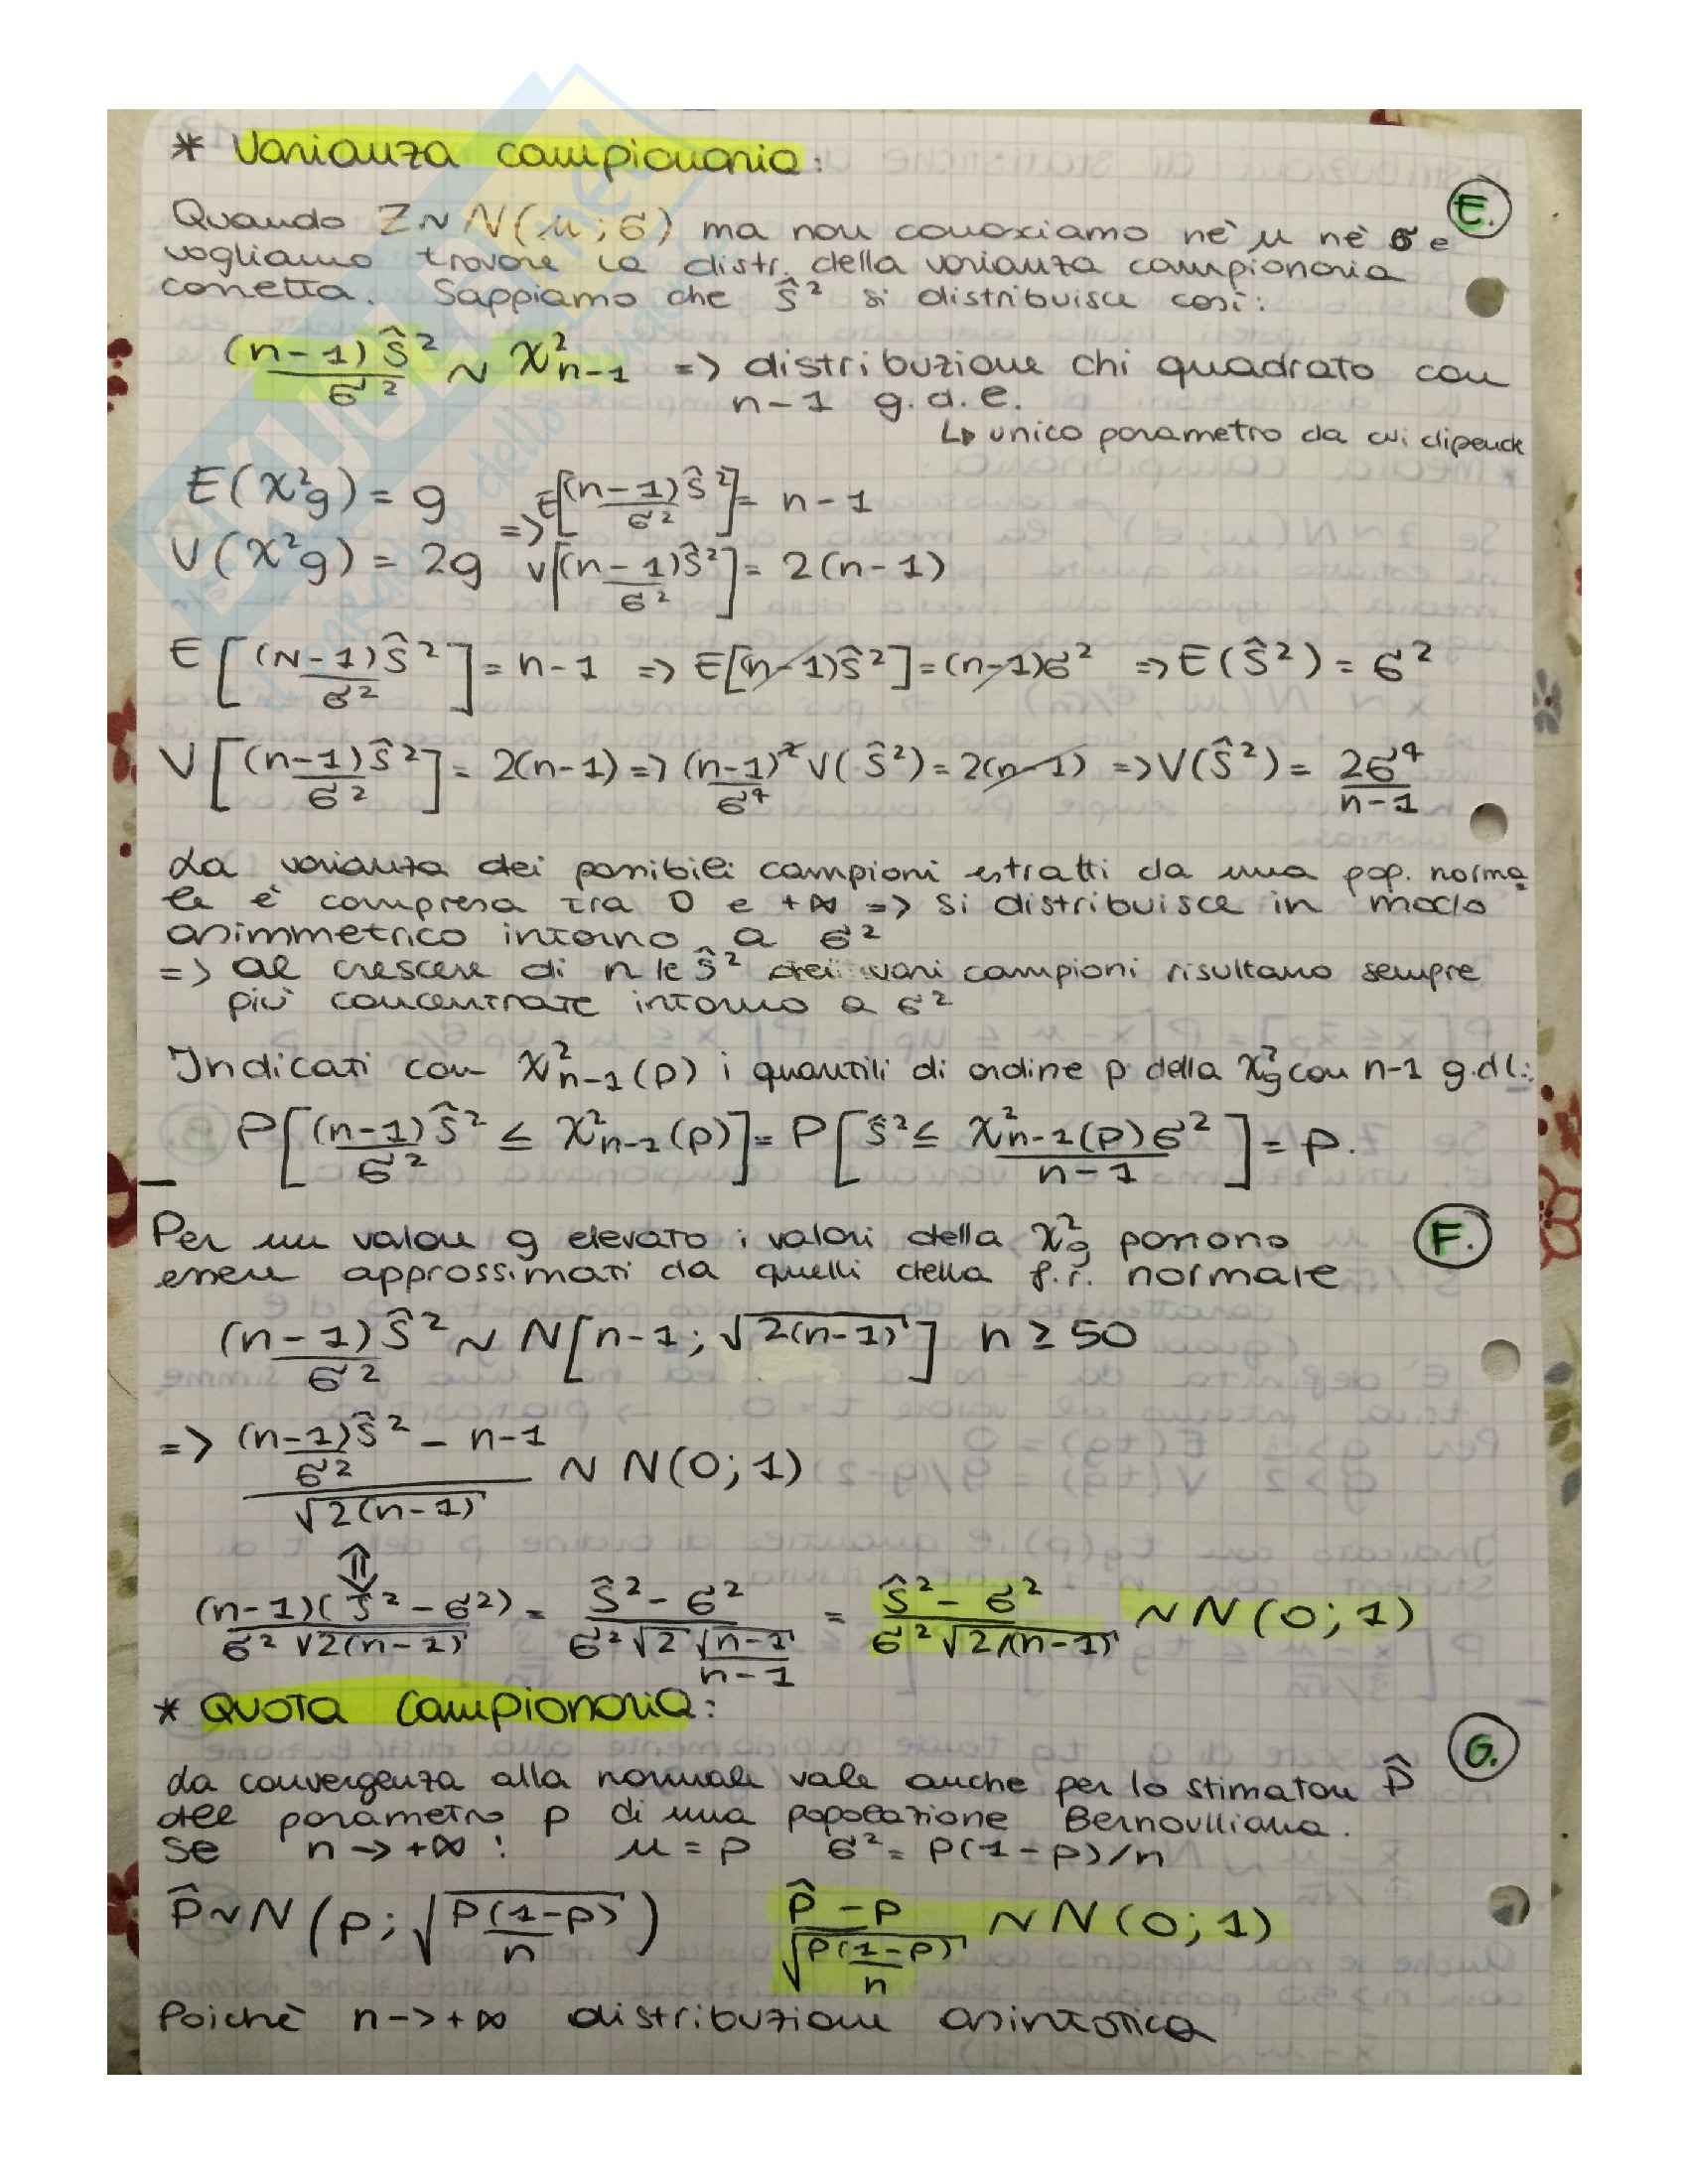 * Varianza campionaria:
E.
Quando Z~N(μ;σ) ma non conosciamo nè μ nè σ e
vogliamo trovare la distr. della varianza campionaria
corretta. Sappiamo che Ŝ² si distribuisce così:
(n-1)Ŝ²/σ² ~ χ²n-1 => distribuzione chi quadrato con
n-1 g.d.e.
↳ unico parametro da cui dipende
E(χ²g) = g => E[(n-1)Ŝ²/σ²] = n-1
V(χ²g) = 2g V[(n-1)Ŝ²/σ²] = 2(n-1)
E[(N-1)Ŝ²/σ²] = n-1 => E[(n-1)Ŝ²] = (n-1)σ² => E(Ŝ²) = σ²
V[(n-1)Ŝ²/σ²] = 2(n-1) => (n-1)²/σ⁴ V(Ŝ²) = 2(n-1) => V(Ŝ²) = 2σ⁴/n-1
La varianza dei possibili campioni estratti da una pop. norma
le è compresa tra 0 e +∞ => si distribuisce in modo
asimmetrico intorno a σ²
=> al crescere di n le Ŝ² dei vari campioni risultano sempre
più concentrate intorno a σ²
Indicati con χ²n-1(p) i quantili di ordine p della χ²g con n-1 g.dl:
P[(n-1)Ŝ²/σ² ≤ χ²n-1(p)] = P[Ŝ² ≤ χ²n-1(p)σ²/n-1] = p.
F.
Per un valore g elevato i valori della χ²g possono
essere approssimati da quelli della f.r. normale
(n-1)Ŝ²/σ² ~ N[n-1; √2(n-1)] n ≥ 50
=> (n-1)Ŝ²/σ² - n-1 / √2(n-1) ~ N(0;1)
⇕
(n-1)(Ŝ²-σ²)/σ²√2(n-1) = Ŝ²-σ²/σ²√2 √n-1/n-1 = Ŝ²-σ²/σ²√2/(n-1) ~ N(0;1)
* Quota Campionaria:
G.
La convergenza alla normale vale anche per lo stimatore P̂
del parametro p di una popolazione Bernoulliana.
Se n -> +∞ : μ = p σ² = p(1-p)/n
P̂ ~ N(p; √p(1-p)/n) P̂-p/√p(1-p)/n ~ N(0;1)
Poichè n -> +∞ distribuzione asintotica